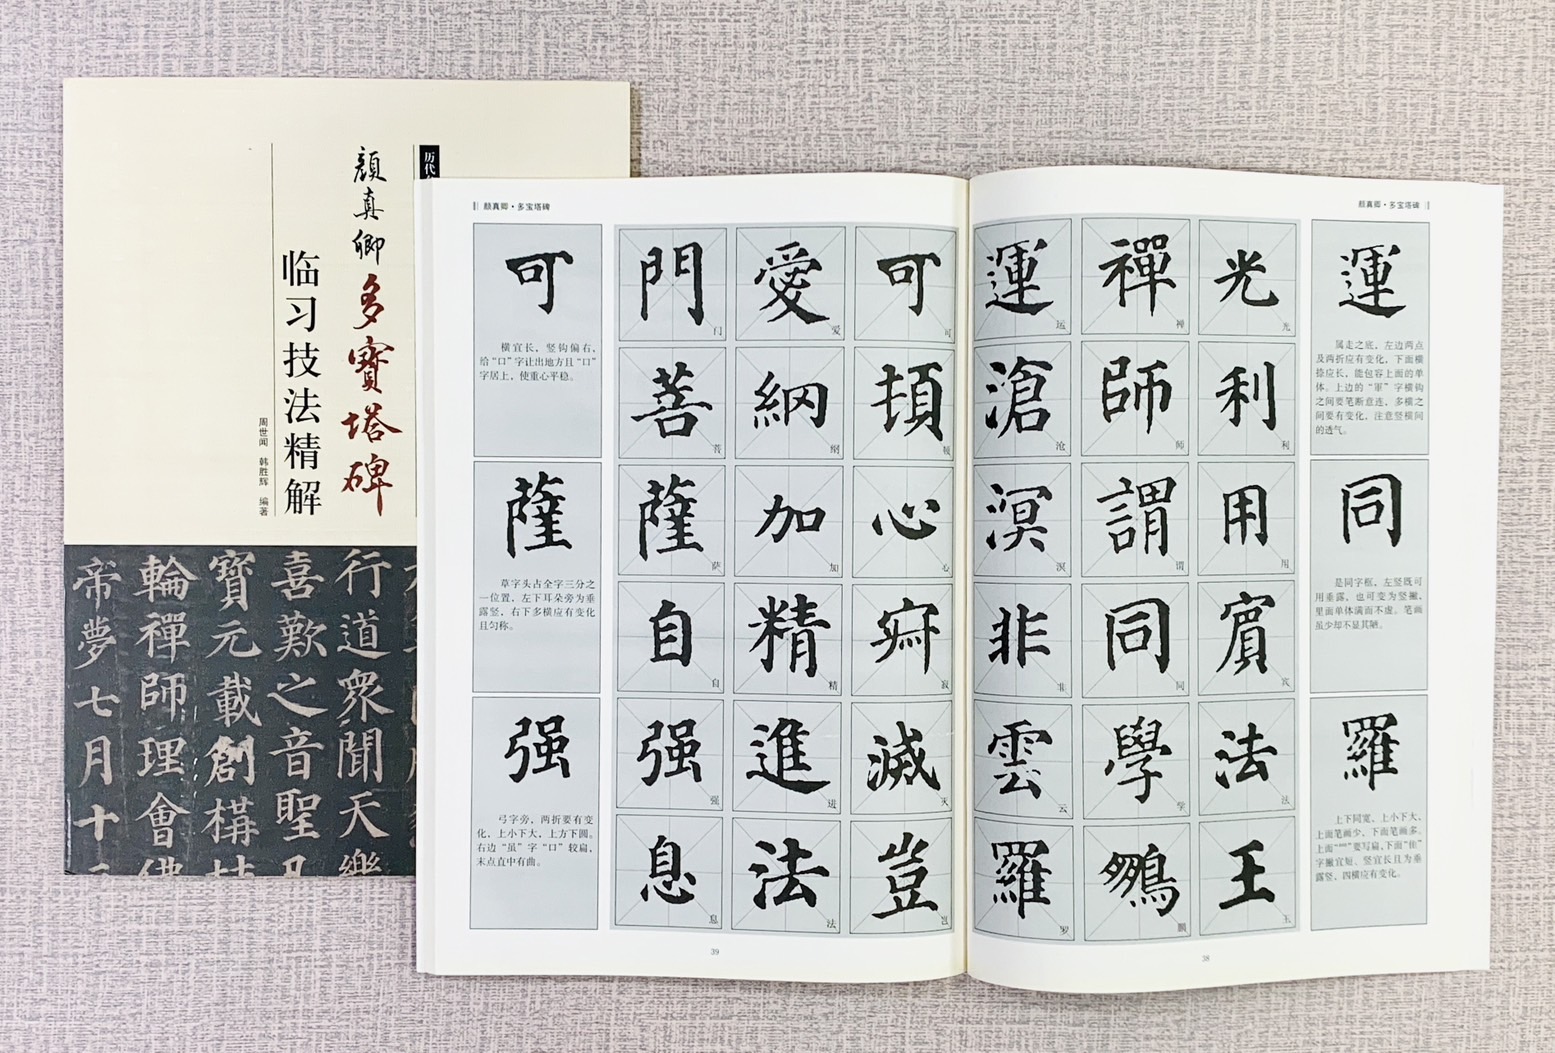 历代
顏真卿多寶塔碑
临习技法精解
周世闻 韩胜辉 编著
行道衆聞天樂
喜歎之音聖凡
寶元載創構材
輪禪師理會佛
帝夢七月十三
颜真卿·多宝塔碑
運
属走之底，左边两点
及两折应有变化，下面横
捺应长，能包容上面的单
体。上边的“軍”字横钩
之间要笔断意连，多横之
间要有变化，注意竖横间
的透气。
同
是同字框，左竖既可
用垂露，也可变为竖撇，
里面单体满而不虚。笔画
虽少却不显其陋。
羅
上下同宽，上小下大，
上面笔画少，下面笔画多。
上面“罒”要写扁，下面“隹”
字撇宜短、竖宜长且为垂
露竖，四横应有变化。
光利用賓法王
光利用宾法王
禪師謂同學鵬
禅师谓同学鹏
運滄溟非雲羅
运沧溟非云罗
38
颜真卿·多宝塔碑
可頓心寂滅豈
可顿心寂灭岂
愛網加精進法
爱纲加精进法
門菩薩自强息
门菩萨自强息
可
横宜长，竖钩偏右，
给“口”字让出地方且“口”
字居上，使重心平稳。
薩
草字头占全字三分之
一位置，左下耳朵旁为垂
露竖，右下多横应有变化
且匀称。
强
弓字旁，两折要有变
化，上小下大，上方下圆。
右边“虽”字“口”较扁，
末点直中有曲。
39